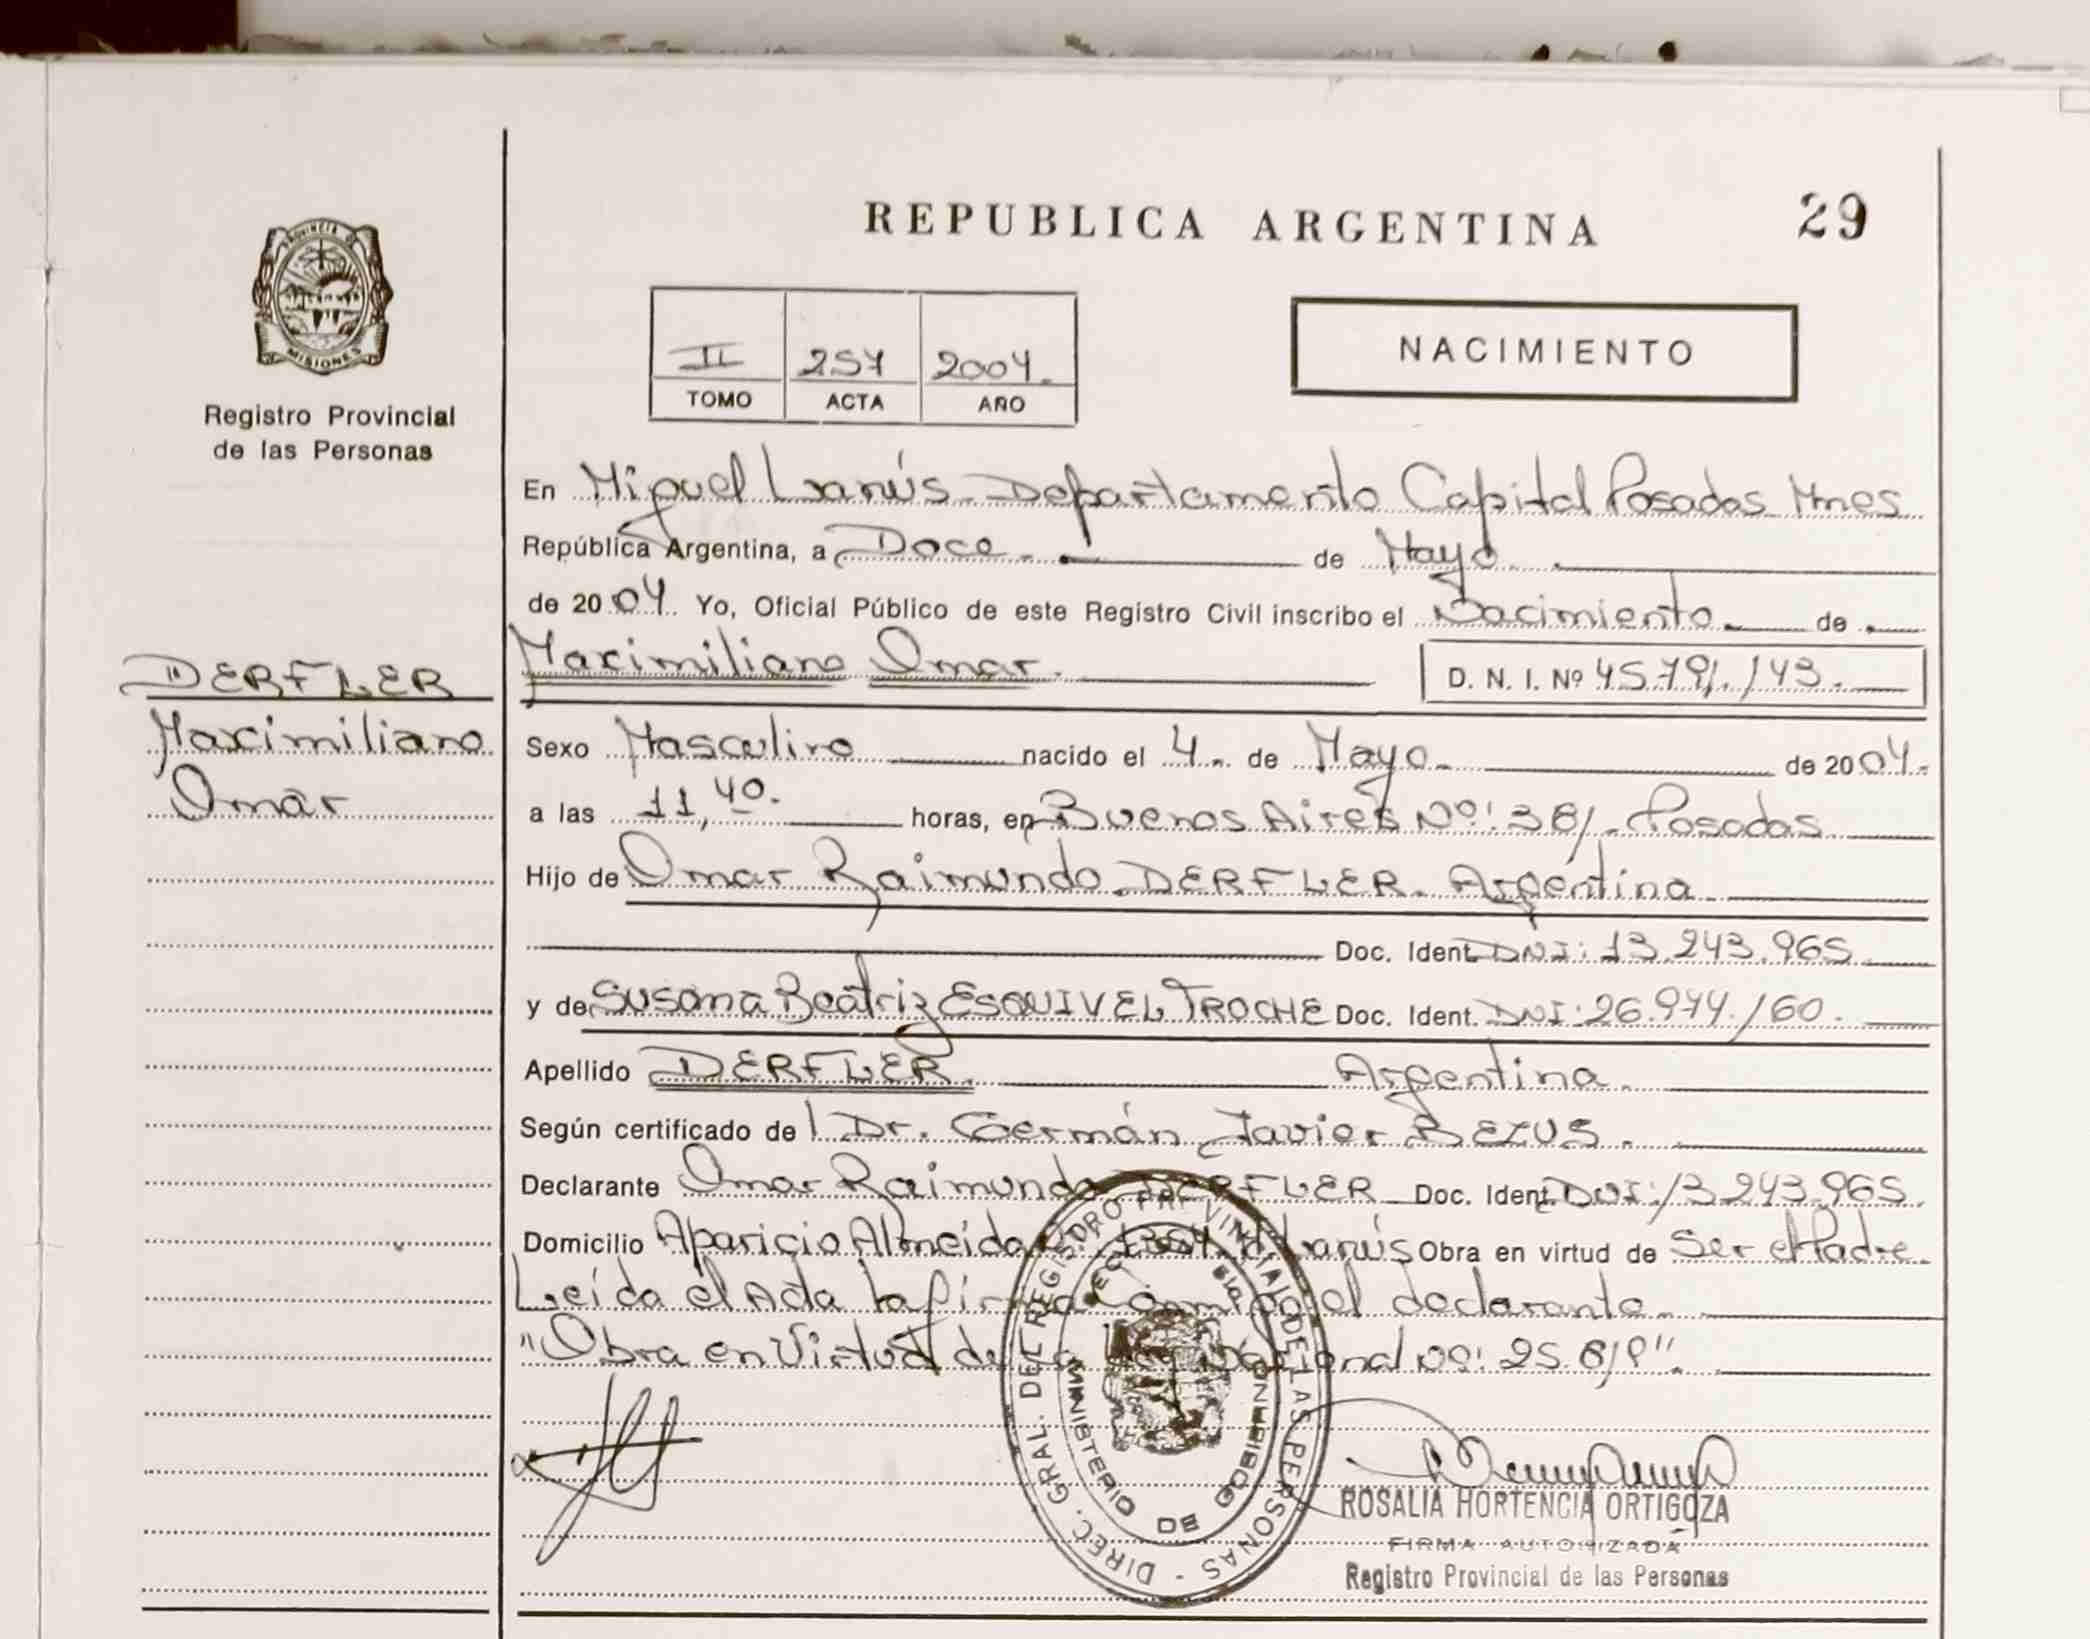 REPUBLICA ARGENTINA
29
PROVINCIA DE
MISIONES
Registro Provincial
de las Personas
II 257 2004.
TOMO ACTA AÑO
NACIMIENTO
En Miguel Lanús Departamento Capital Posadas Mnes
República Argentina, a Doce de Mayo
de 2004. Yo, Oficial Público de este Registro Civil inscribo el Nacimiento de
DERFLER
Maximiliano
Omar
Maximiliano Omar. D. N. I. Nº 45.791.143.
Sexo Masculino nacido el 4 de Mayo de 2004.
a las 11,40. horas, en Buenos Aires Nº: 381 Posadas
Hijo de Omar Raimundo DERFLER. Argentina
Doc. Ident. DNI: 13.243.965
y de Susana Beatriz ESQUIVEL TROCHE Doc. Ident. DNI: 26.974.160.
Apellido DERFLER. Argentina.
Según certificado de Dr. Germán Javier BEXUS.
Declarante Omar Raimundo DERFLER Doc. Ident. DNI: 13.243.965.
Domicilio Aparicio Almeida Lanús Obra en virtud de Ser el Padre
Leída el Acta la firma Conmigo el declarante.
"Obra en Virtud de la Nacional Nº: 25.819".
DIREC. GRAL. DEL REGISTRO PROVINCIAL DE LAS PERSONAS
MINISTERIO DE GOBIERNO
ROSALIA HORTENCIA ORTIGOZA
FIRMA AUTORIZADA
Registro Provincial de las Personas